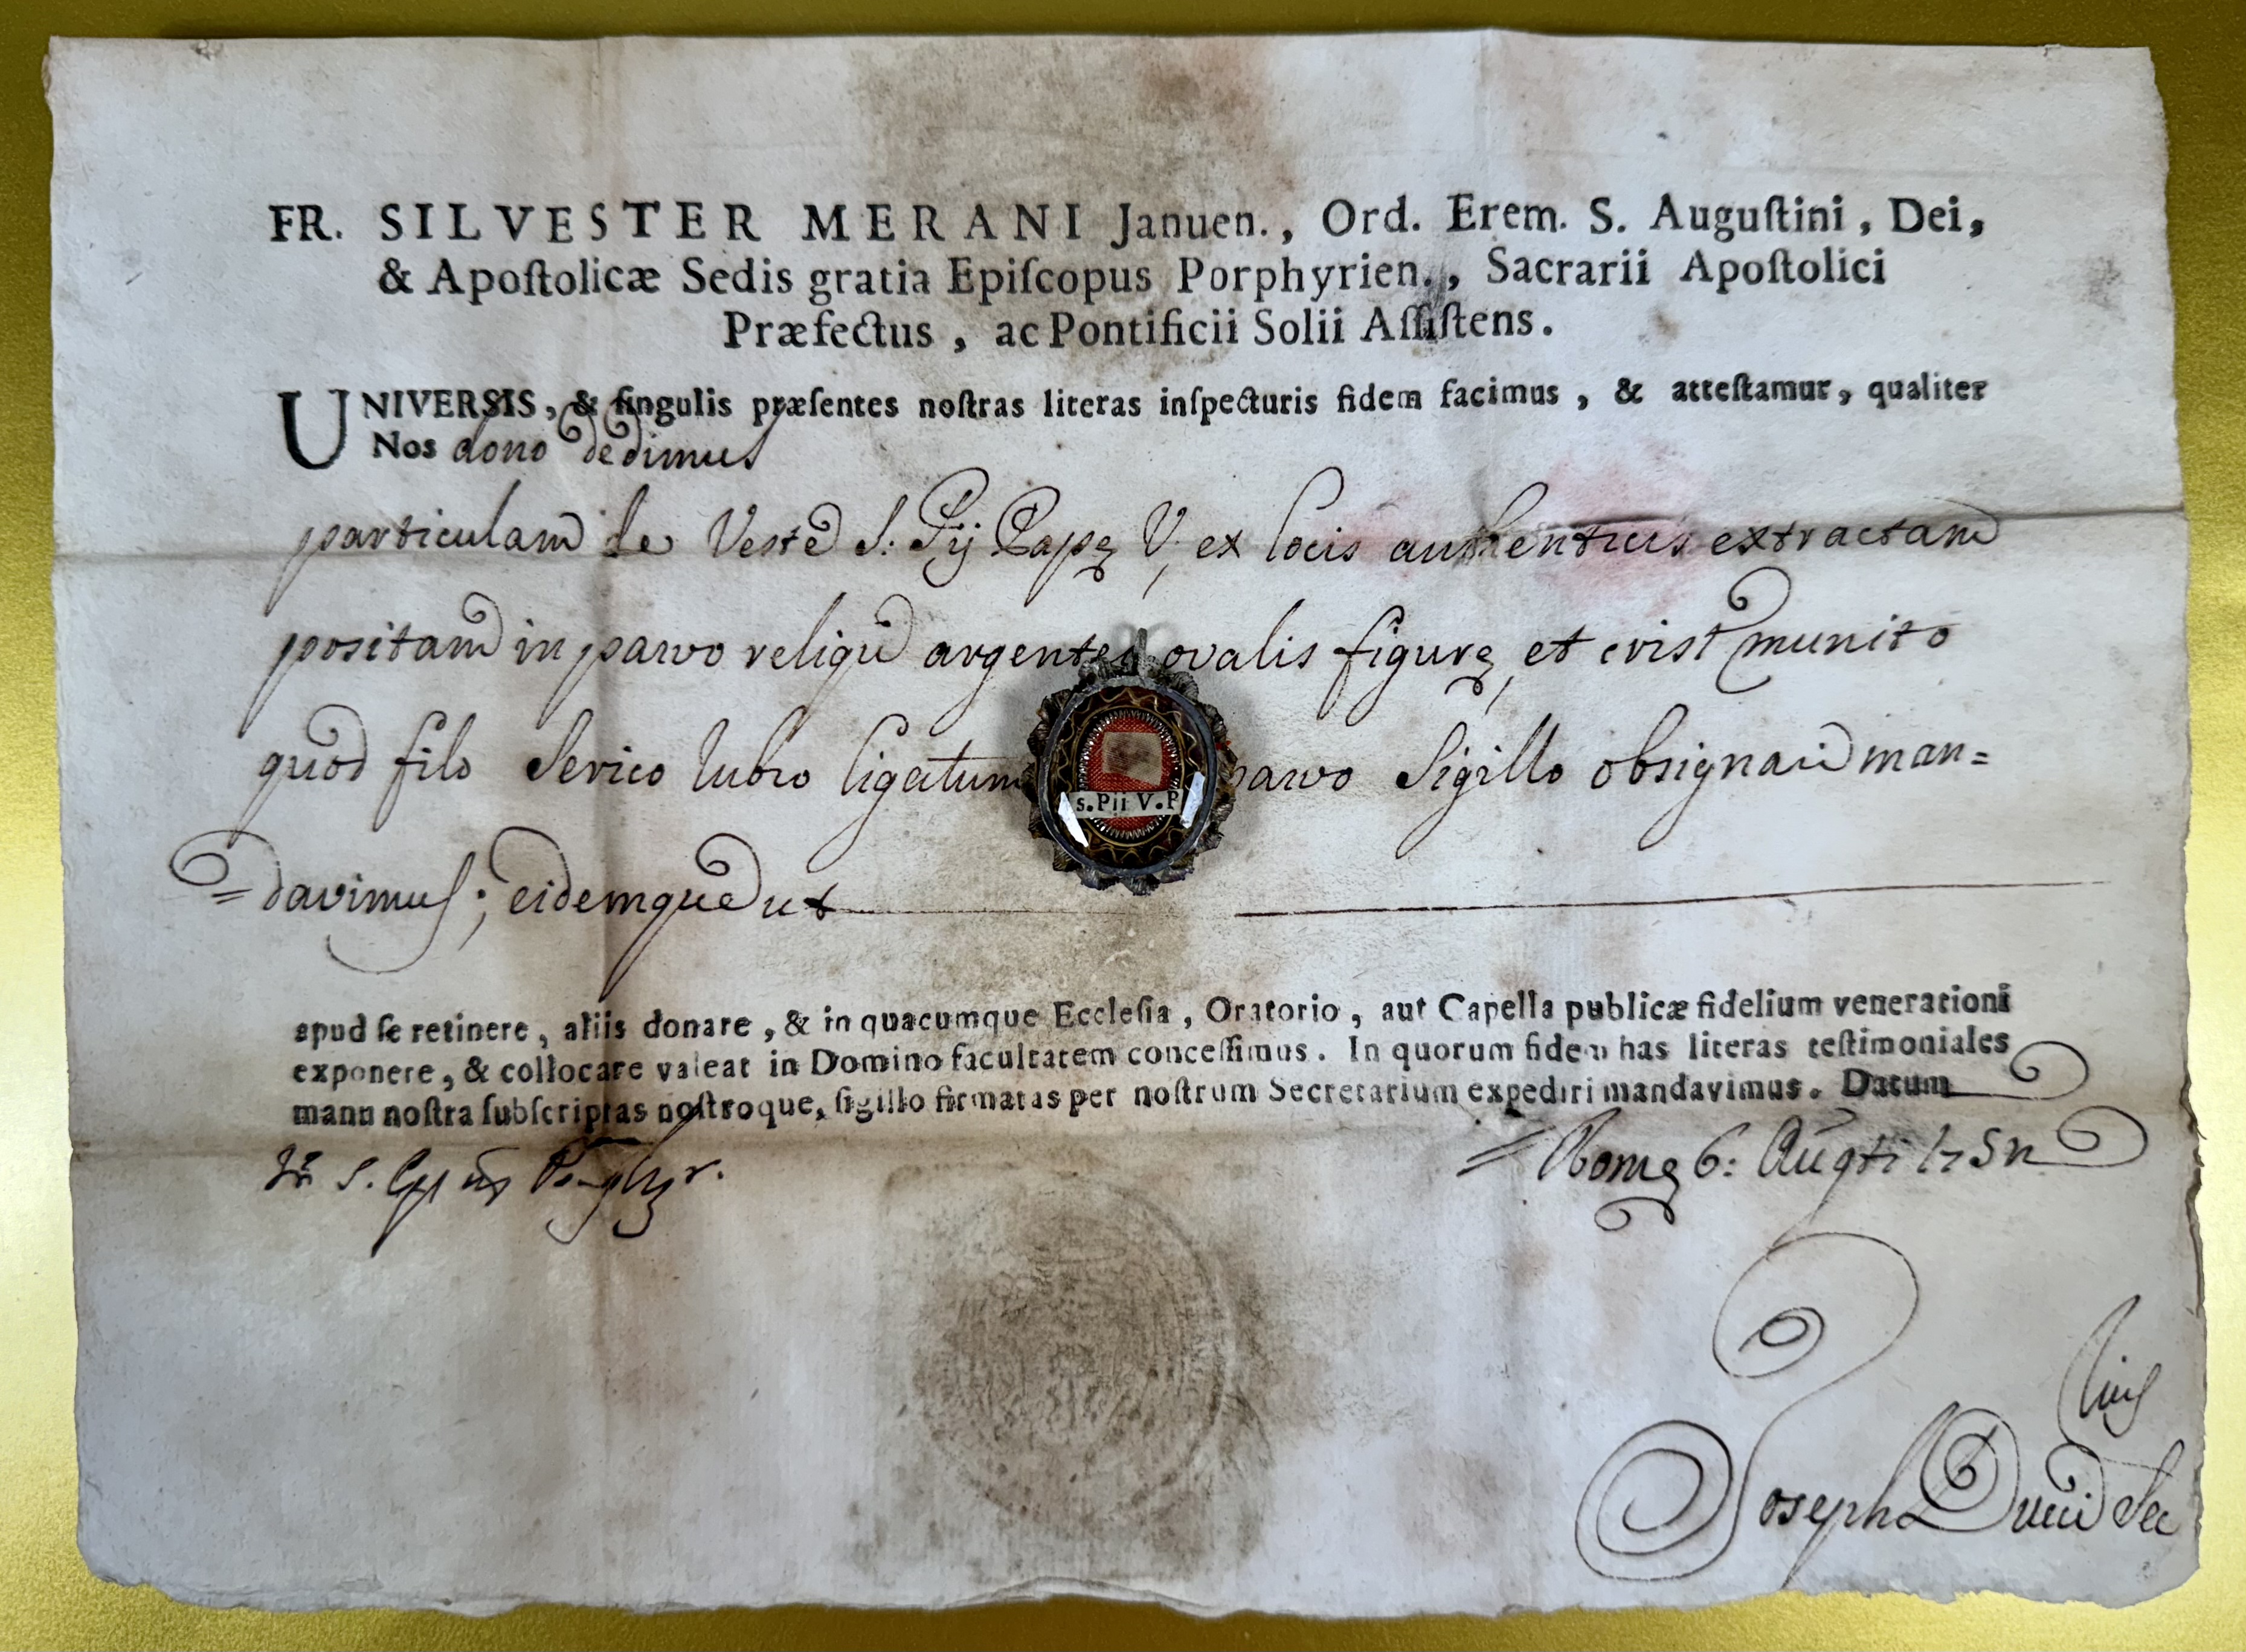 FR. SILVESTER MERANI Januen., Ord. Erem. S. Auguſtini, Dei,
& Apoſtolicæ Sedis gratia Epiſcopus Porphyrien., Sacrarii Apoſtolici
Præfectus, ac Pontificii Solii Aſſiſtens.
UNIVERSIS, & ſingulis præſentes noſtras literas inſpecturis fidem facimus, & atteſtamur, qualiter
Nos dono dedimus
particulam de Veste S: Pij Papę V, ex locis authenticis extractam
positam in parvo reliqu argenteo ovalis figurę, et crist munito
quod filo Serico rubro ligatum parvo Sigillo obsignari man=
=davimus; eidemque ut
s. Pii V. P
apud ſe retinere, aliis donare, & in quacumque Eccleſia, Oratorio, aut Capella publicæ fidelium venerationi
exponere, & collocare valeat in Domino facultatem conceſſimus. In quorum fidem has literas teſtimoniales
manu noſtra ſubſcriptas noſtroque, ſigillo firmatas per noſtrum Secretarium expediri mandavimus. Datum
Romę 6: Augti
Joseph Sec